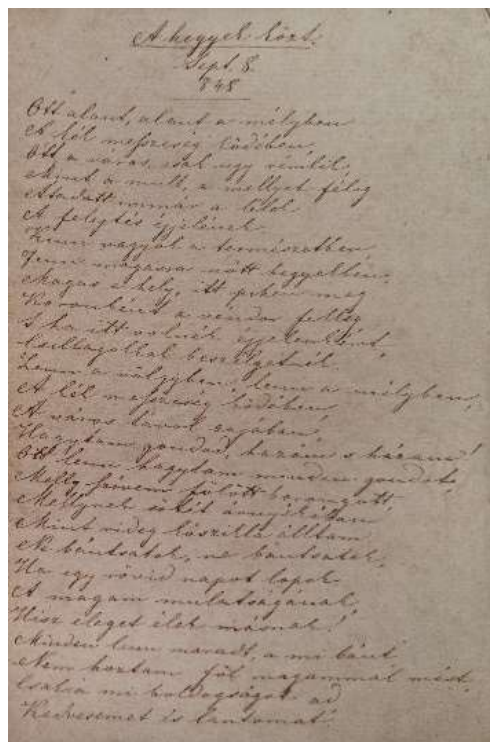 A hegyek közt.
Sept. 8.
848
Ott alant, alant a mélyben
A lél messzeség ködében,
Ott a város, csak ugy rémlik,
Mint a mult, a mellyet félig
Átadott immár a lélek
A felejtés éjjelének.
Kinn vagyok a természetben,
Fenn magasra nőtt hegyekben,
Magas a hely, itt pihen meg
Koronként a vándor felleg
S ha itt volnék éjjelenként
Csillagokkal beszélgetnék.
Lenn a völgyben, lenn a mélyben,
A lél messzeség ködében
A város távol zajában
Hagytam gondod, hazám s házam!
Ott lenn hagytam minden gondot,
Melly szivem fölött borongott,
Mellynek sötét árnyékában
Mint rideg kőszikla álltam
Ne bántsatok, ne bántsatok,
Ha egy rövid napot lopok
A magam mulatságának,
Hisz eleget élek másnak!
Minden lenn maradt, a mi bánt
Nem hoztam föl magammal mást,
Csak a mi boldogságot ad
Kedvesemet és lantomat!